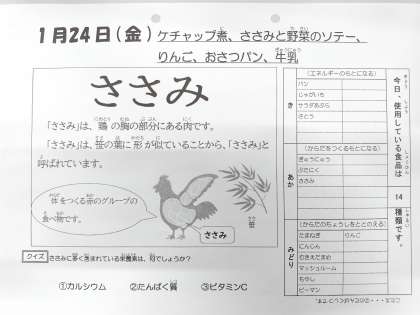 1月24日(金) ケチャップ煮、ささみと野菜のソテー、
りんご、おさつパン、牛乳
ささみ
「ささみ」は、鶏の胸の部分にある肉です。
「ささみ」は、笹の葉に形が似ていることから、「ささみ」と
呼ばれています。
体をつくる赤のグループの
食べ物です。
ささみ
笹
クイズ ささみに多く含まれている栄養素は、何でしょうか?
①カルシウム ②たんぱく質 ③ビタミンC
今日、使用している食品は 14 種類です。
き
(エネルギーのもとになる)
パン
じゃがいも
サラダあぶら
さとう
あか
(からだをつくるもとになる)
ぎゅうにゅう
ぶたにく
ささみ
みどり
(からだのちょうしをととのえる)
たまねぎ りんご
にんじん
むきえだまめ
マッシュルーム
もやし
ピーマン